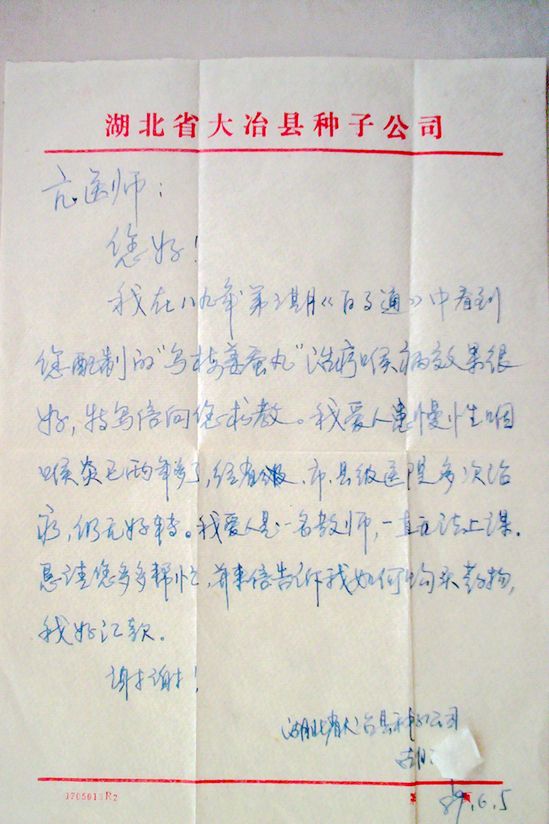 湖北省大冶县种子公司
亢医师：
您好！
我在八九年第2期《百事通》中看到
您配制的“乌梅姜蚕丸”治疗喉病效果很
好，特写信向您求教。我爱人患慢性咽
喉炎已两年多了，经省级、市、县级医院多次治
疗，仍无好转。我爱人是一名教师，一直无法上课。
恳请您多多帮忙，并来信告诉我如何购买药物，
我好汇款。
谢谢！
湖北省大冶县种子公司
89.6.5
1705013R2